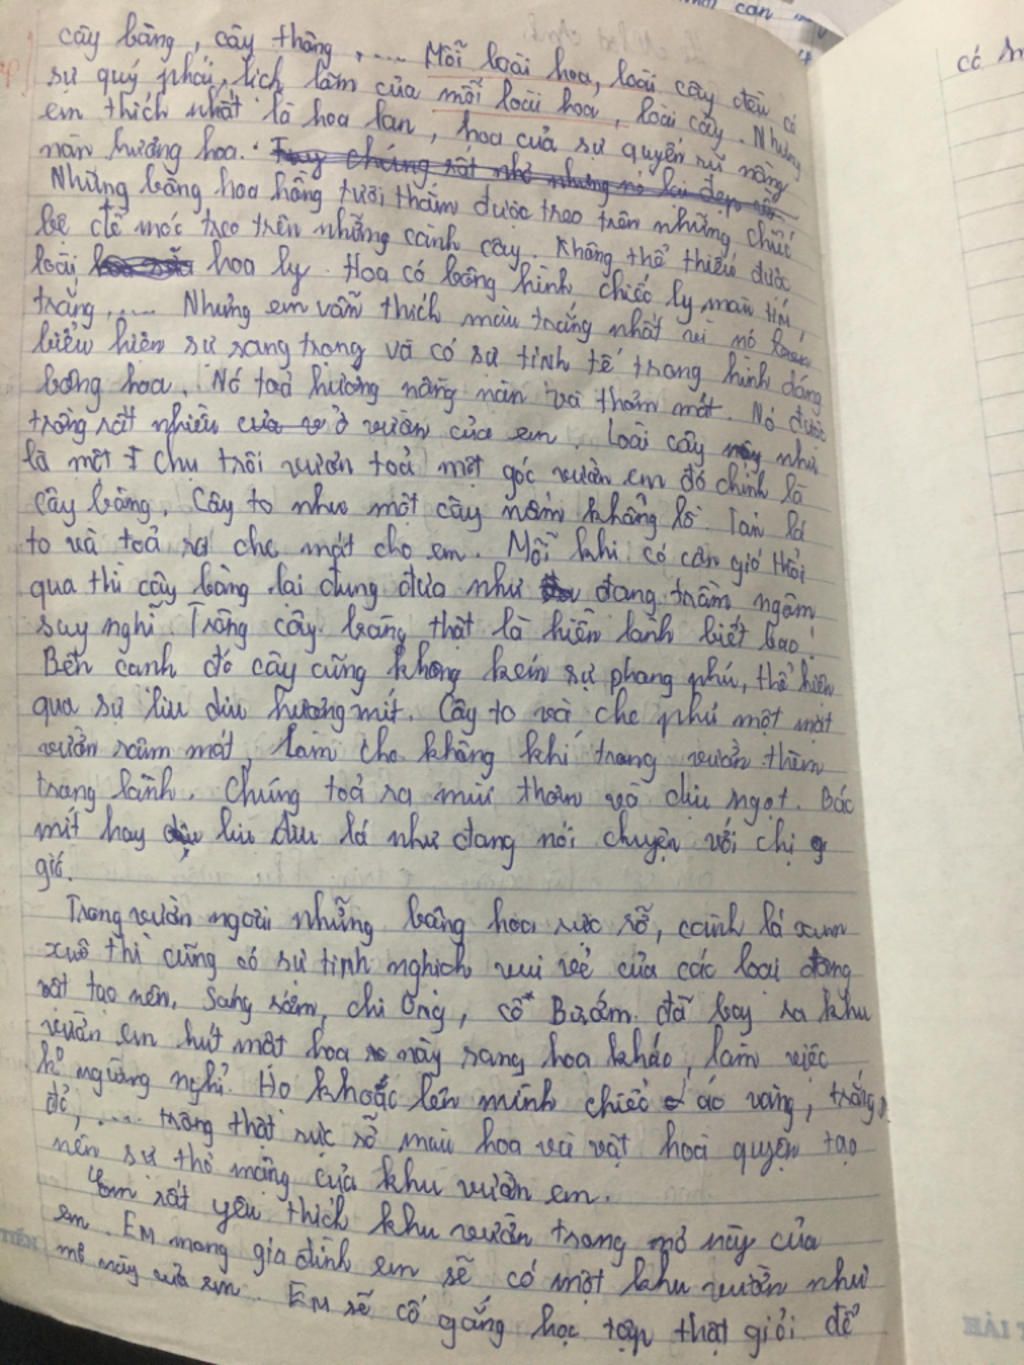 cây bàng, cây thông, .... Mỗi loài hoa, loài cây đều có
sự quý phái, lịch lãm của mỗi loài hoa, loài cây. Nhưng
em thích nhất là hoa lan, hoa của sự quyến rũ nồng
nàn hương hoa. Tuy chúng rất nhỏ nhưng nó lại đẹp
Những bông hoa hồng tươi thắm được treo trên những chiếc
để móc treo trên những cành cây. Không thể thiếu được
loài hoa ly. Hoa có bông hình chiếc ly màu tím,
trắng, .... Nhưng em vẫn thích màu trắng nhất vì nó
biểu hiện sự sang trọng và có sự tinh tế trong hình dáng
bông hoa. Nó toả hương nồng nàn và thơm mát. Nó được
trồng rất nhiều ở vườn của em. Loài cây này như
là một chụ trôi vươn toả một góc vườn em đó chính là
cây bàng. Cây to như một cây nấm khổng lồ. Tán lá
to và toả ra che mát cho em. Mỗi khi có cơn gió thổi
qua thì cây bàng lại đung đưa như đang trầm ngâm
suy nghĩ. Trông cây bàng thật là hiền lành biết bao!
Bến cạnh đó cây cũng không kém sự phong phú, thể hiện
qua sự liu diu hương mít. Cây to và che phủ một mặt
vườn râm mát, làm cho không khí trong vườn thêm
trong lành. Chúng toả ra mùi thơm và dịu ngọt. Bác
mít hay liu diu lá như đang nói chuyện với chị g
gió.
Trong vườn ngoài những bông hoa rực rỡ, cành lá xum
xuê thì cũng có sự tinh nghịch vui vẻ của các loại động
vật tạo nên. Sáng sớm, chị Ong, cô Bướm đã bay ra khu
vườn em hút mật hoa này sang hoa kháo, làm việc
k ngừng nghỉ. Họ khoác lên mình chiếc áo vàng, trắng,
đỏ, .... trông thật rực rỡ màu hoa và vật hoà quyện tạo
nên sự thơ mộng của khu vườn em.
Em rất yêu thích khu vườn trong mơ này của
em. Em mong gia đình em sẽ có một khu vườn như
mơ này của em. Em sẽ cố gắng học tập thật giỏi để
có